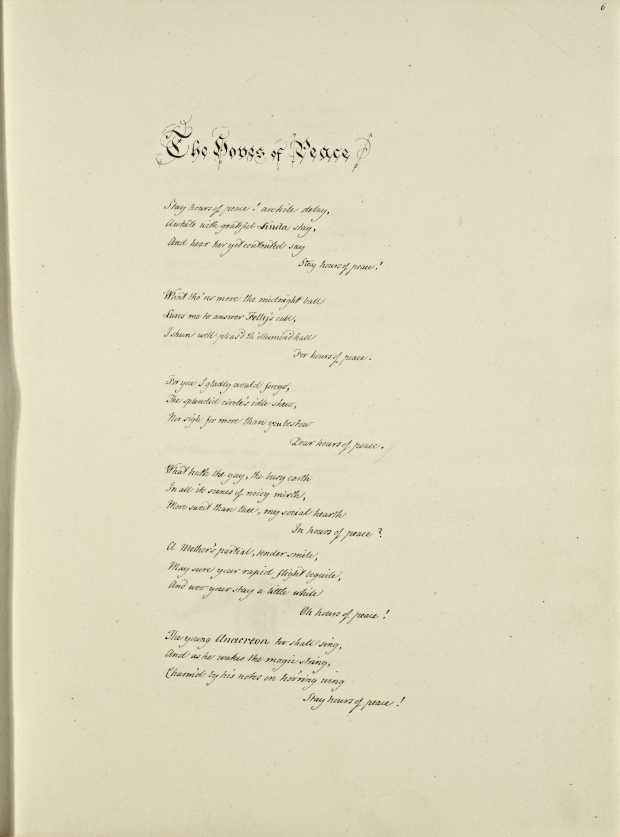 6
The Hours of Peace
Stay hours of peace! awhile delay,
Awhile with grateful Linda stay,
And hear her yet contented say
Stay hours of peace!
What tho' no more the midnight ball
Lures me to answer Folly's call,
I shun well pleas'd th' illumin'd hall
For hours of peace.
For you I gladly would forego,
The splendid circle's idle shew,
Nor sigh for more than you bestow
Dear hours of peace.
What hath the gay, the busy earth
In all its scenes of noisy mirth,
More sweet than thee, my social hearth
In hours of peace?
A Mother's partial, tender smile,
May sure your rapid flight beguile,
And woo your stay a little while
Oh hours of peace!
The young Anacreon too shall sing,
And as he wakes the magic string,
Charm'd by his notes on hov'ring wing
Stay hours of peace!